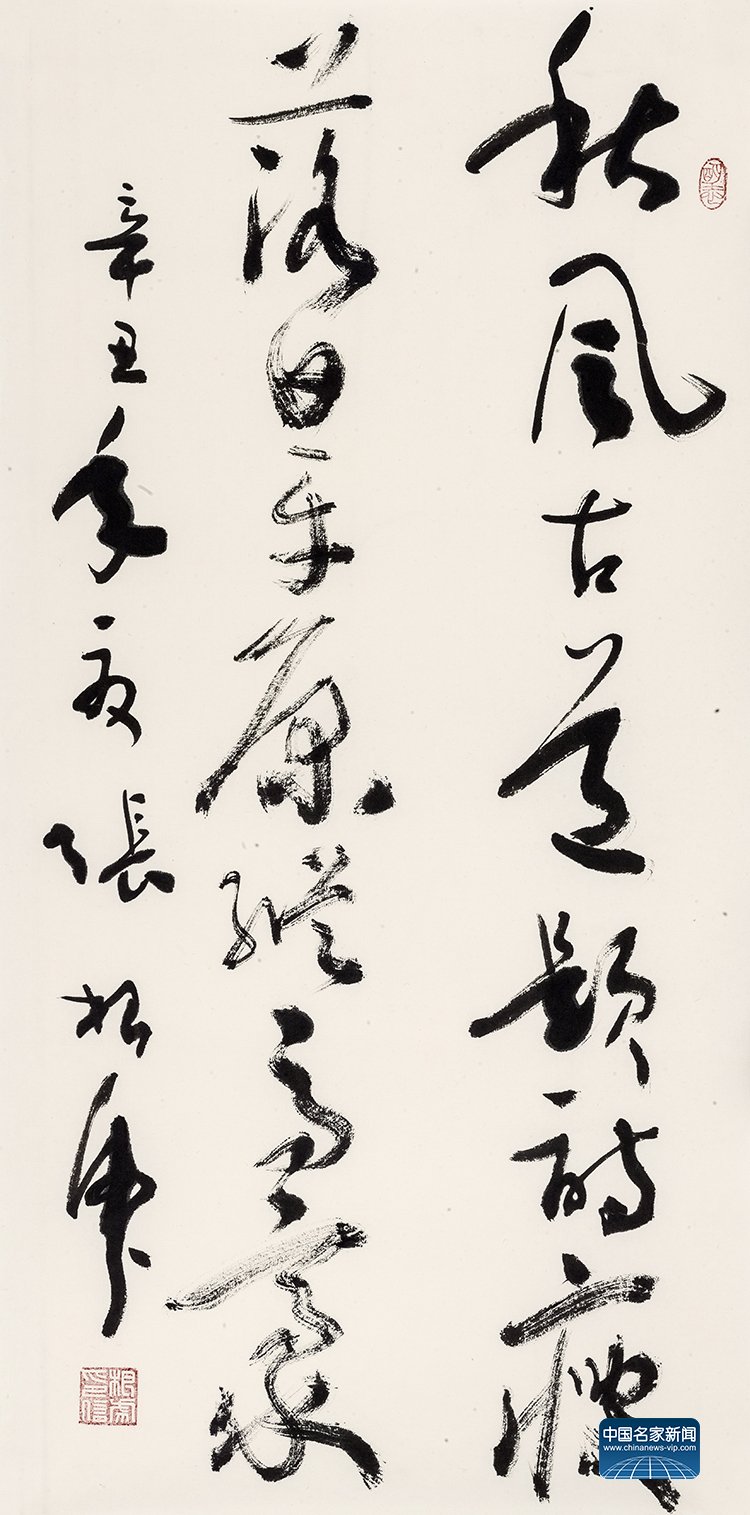 秋風古道題詩瘦
落日平原縱豪
辛丑年夏張根虎
根虎印信
中国名家新闻
www.chinanews-vip.com